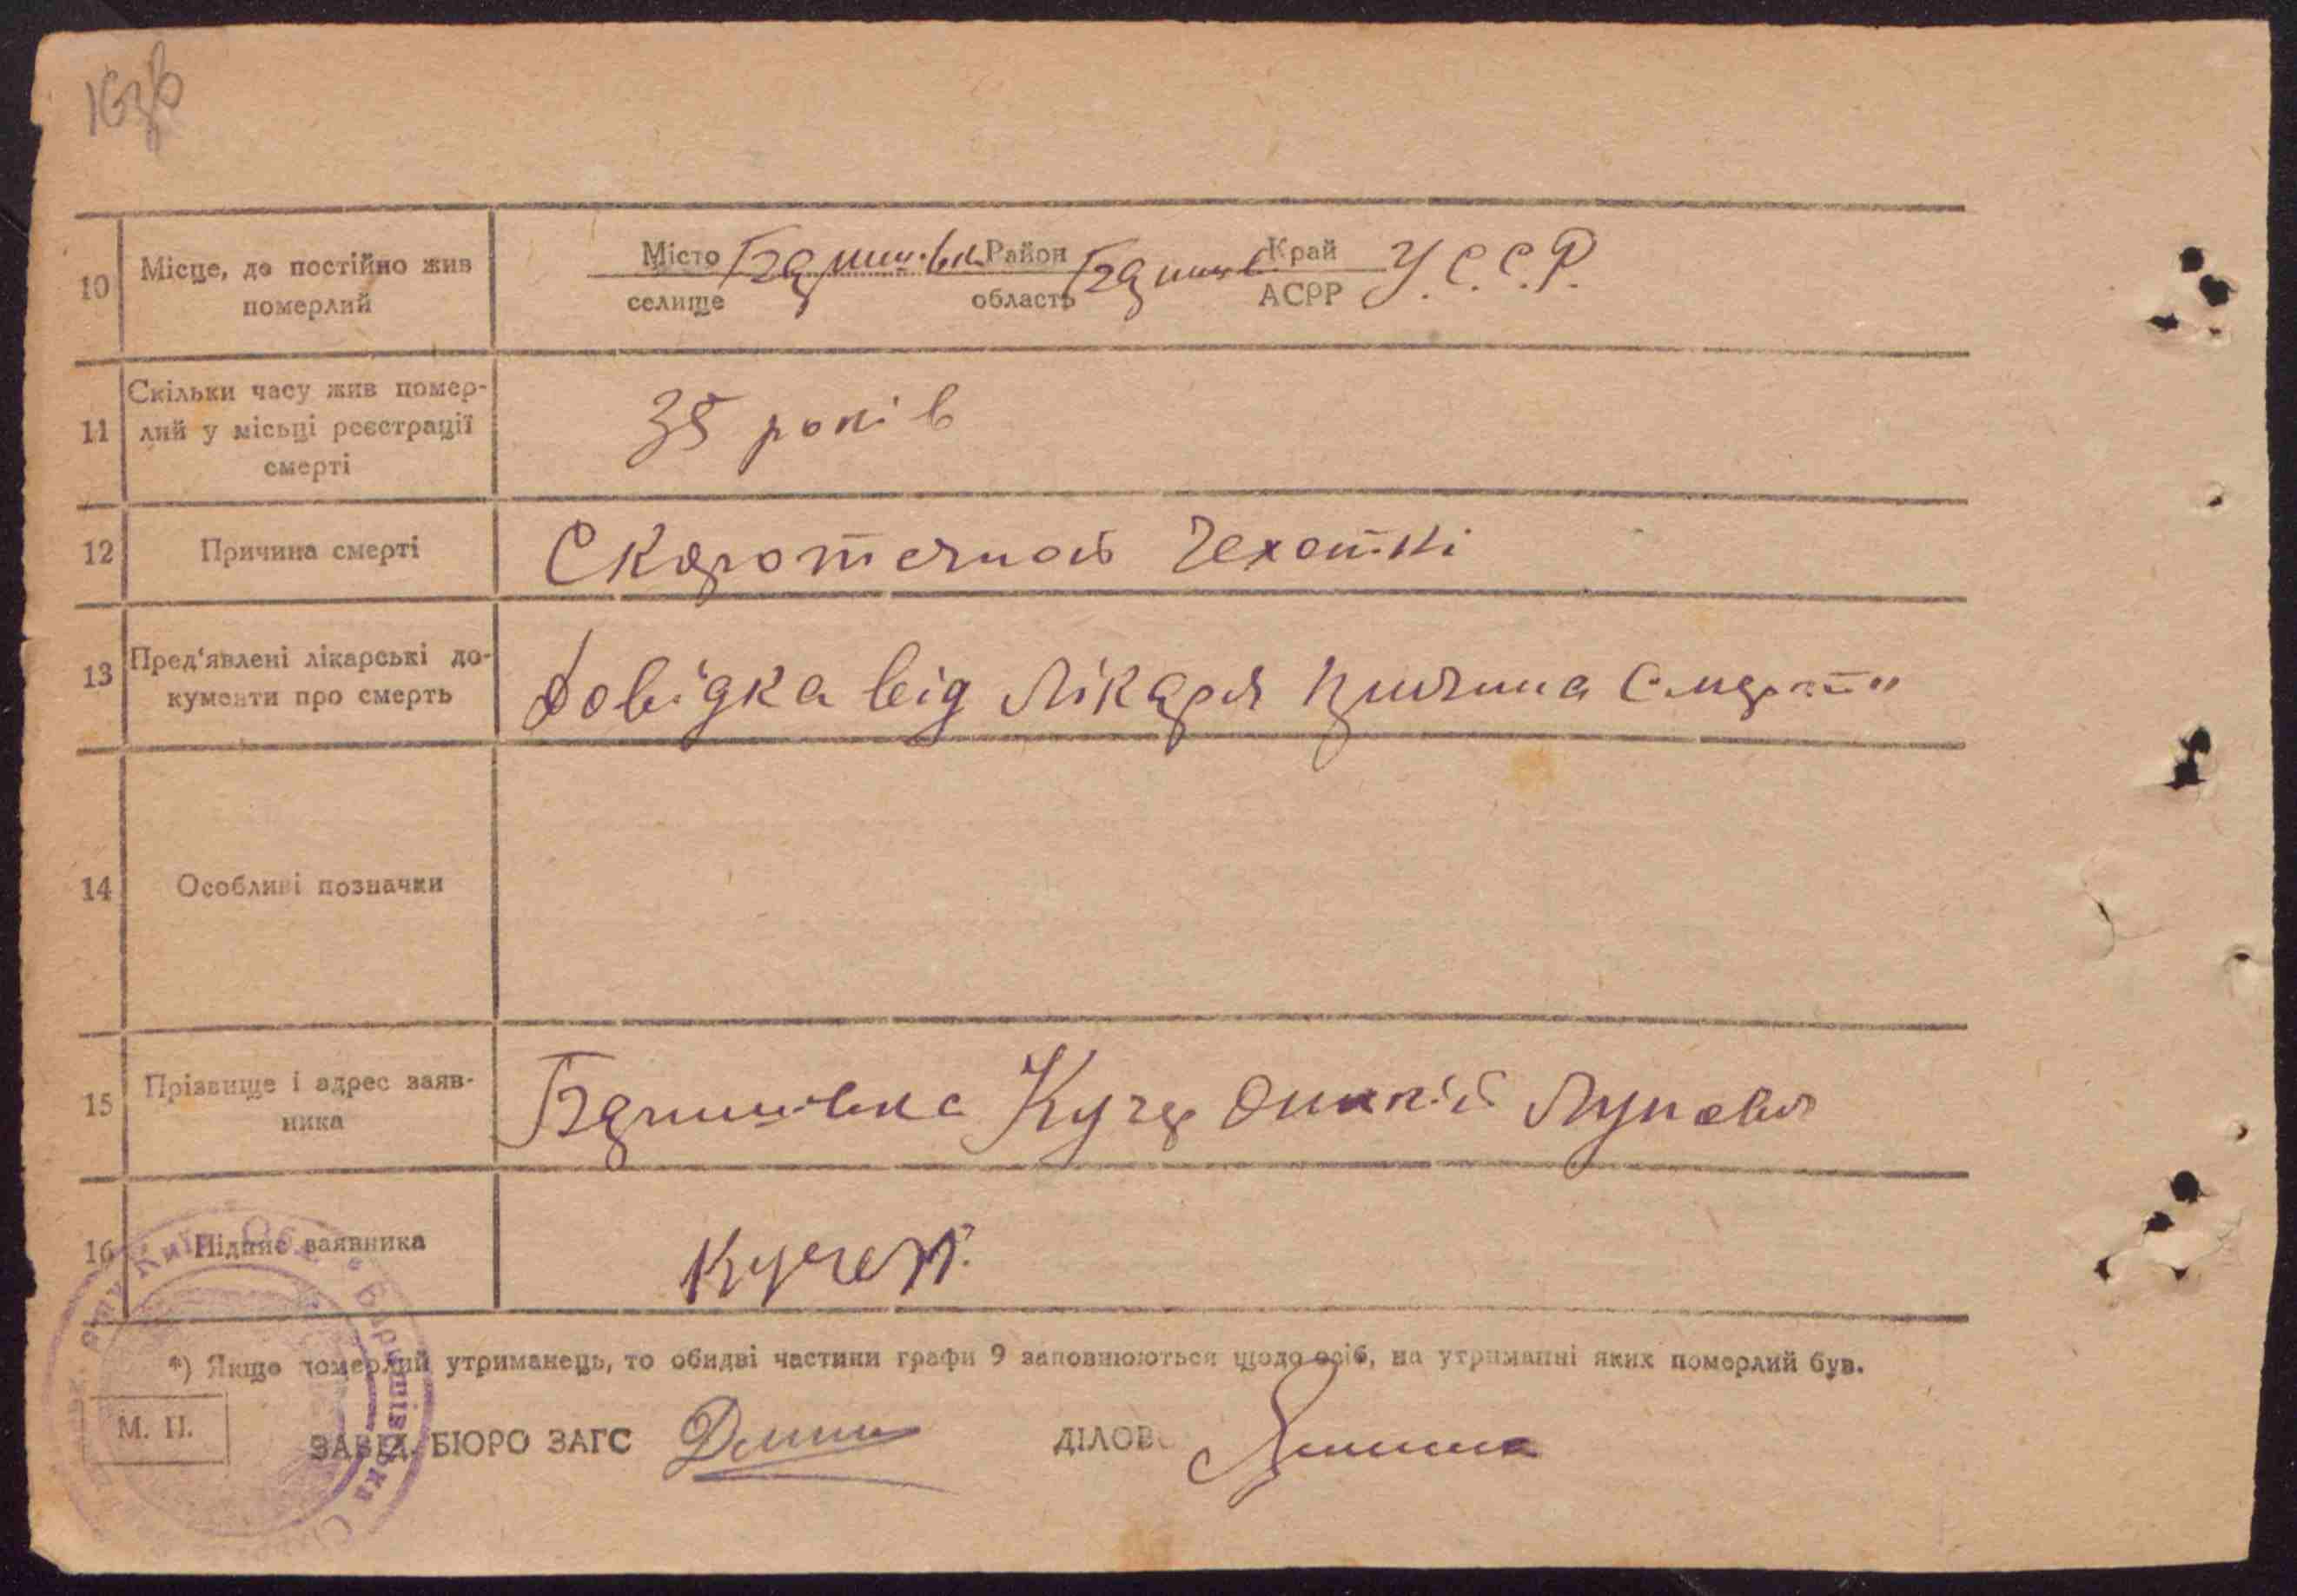 163в
10 Місце, де постійно жив померлий
Місто селище Баришівка Район область Бариш Край АСРР У.С.С.Р.
11 Скільки часу жив помер-
лий у місьці реєстрації
смерті
35 років
12 Причина смерті Скоротечной Чехоткі
13 Пред'явлені лікарські до-
кументи про смерть
Довідка від Лікаря причина Смерти
14 Особливі позначки
15 Прізвище і адрес заяв-
ника
Баришівка Кучер
16 Підпис заявника Кучер
*) Якщо померлий утриманець, то обидві частини графи 9 заповнюються щодо осіб, на утриманні яких померлий був.
М. П.
ЗАВІД. БЮРО ЗАГС ДІЛОВ
Баришівська